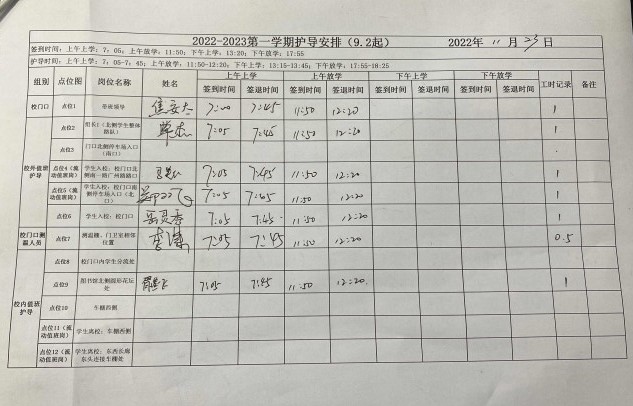 2022-2023第一学期护导安排（9.2起） 2022年 11 月 23 日
签到时间：上午上学：7：05；上午放学：11:50；下午上学：13:20；下午放学：17:55
护导时间：上午上学：7，05-7，45；上午放学：11:50-12:20，下午上学：13:15-13:45；下午放学：17:55-18:25
组别 点位图 岗位名称 姓名 上午上学 上午放学 下午上学 下午放学 工时记录 备注
签到时间 签退时间 签到时间 签退时间 签到时间 签退时间 签到时间 签退时间
校门口 点位1 带班领导 7:00 7:45 11:50 12:20 1
校外值班护导 点位2 组长1（北侧学生整体路队） 7:05 7:45 11:50 12:20 1
点位3 门口北侧停车场入口（南口）
点位4（流动值班岗） 学生入校：校门口北侧南一路广州路路口 7:05 7:45 11:50 12:20 1
点位5（流动值班岗） 学生入校：校门口南侧停车场入口（北口） 7:05 7:45 11:50 12:20 1
点位6 学生入校：校门口 7:05 7:45 11:50 12:20 1
校门口测温人员 点位7 测温棚、门卫室相邻位置 7:05 7:45 11:50 12:20 0.5
校内值班护导 点位8 校门口内学生分流处
点位9 图书馆北侧圆形花坛处 7:05 7:45 11:50 12:20 1
点位10 车棚西侧
点位11（流动值班岗） 学生离校：车棚西侧
点位12（流动值班岗） 学生离校：东西长廊东头连接车棚处